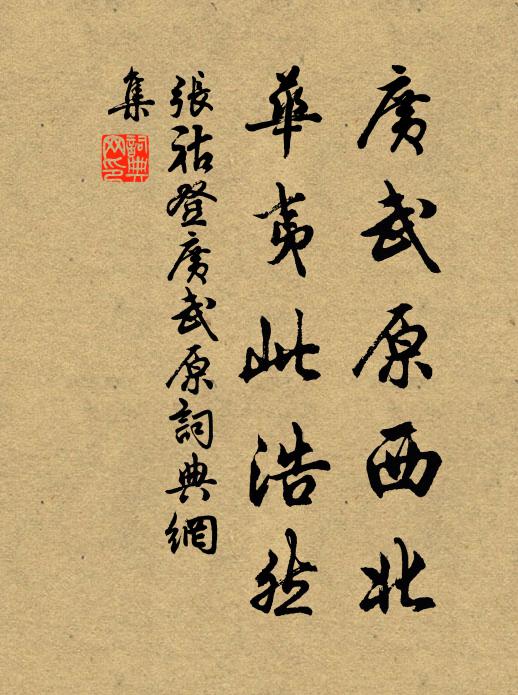 廣武原西北
華夷此浩然
張祜登廣武原詞典網
集
詞典網印